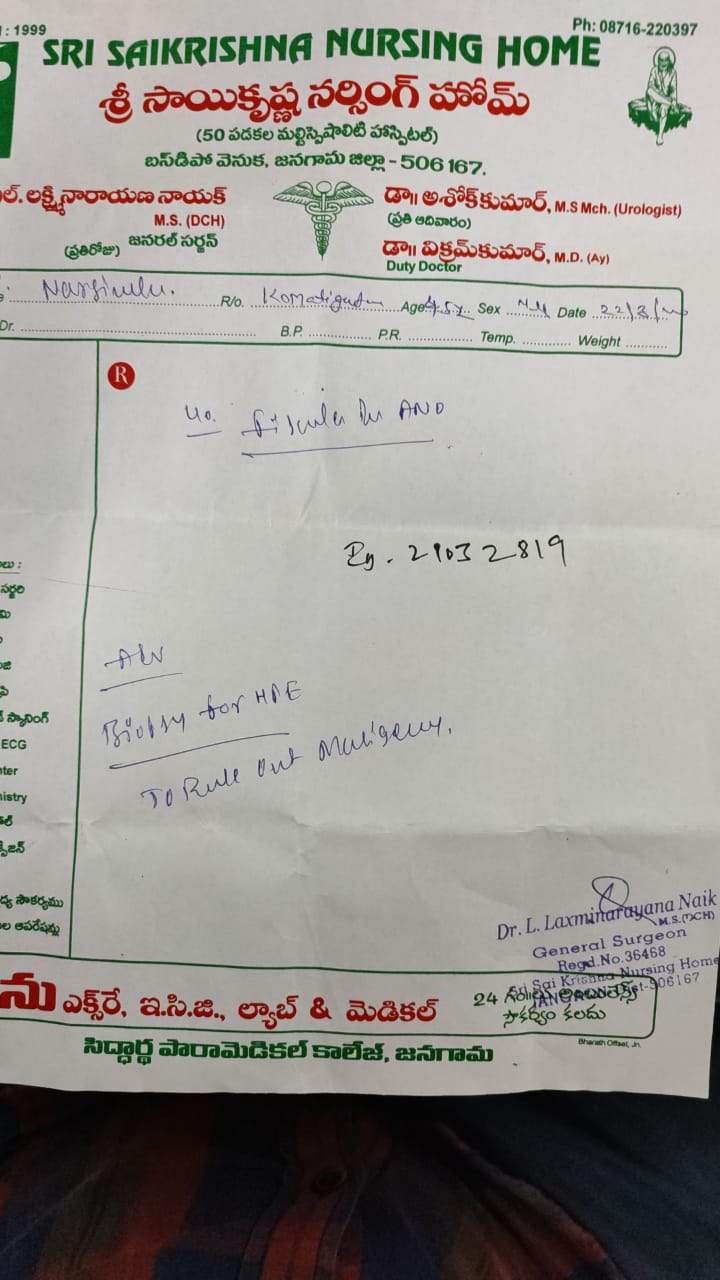 : 1999
Ph: 08716-220397
SRI SAIKRISHNA NURSING HOME
శ్రీ సాయికృష్ణ నర్సింగ్ హోమ్
(50 పడకల మల్టిస్పెషాలిటి హాస్పిటల్)
బస్‌డిపో వెనుక, జనగామ జిల్లా - 506 167.
ల్. లక్ష్మినారాయణ నాయక్
M.S. (DCH)
(ప్రతిరోజు) జనరల్ సర్జన్
డా॥ అశోక్‌కుమార్, M.S Mch. (Urologist)
(ప్రతి ఆదివారం)
డా॥ విక్రమ్‌కుమార్, M.D. (Ay)
Duty Doctor
R/o. Age Sex Date
Dr. B.P. P.R. Temp. Weight
R
Fistula In ANO
Rg. 21032819
Adv
Biopsy for HPE
To Rule Out Maligency.
లు :
సర్జరి
స్కానింగ్
ECG
Dr. L. Laxminarayana Naik
M.S.(DCH)
General Surgeon
Regd.No.36468
Sri Sai Krishna Nursing Home
506167
ను ఎక్స్‌రే, ఇ.సి.జి., ల్యాబ్ & మెడికల్
24 గంటలు అంబులెన్స్
సౌకర్యం కలదు
సిద్ధార్థ పారామెడికల్ కాలేజ్, జనగామ
Bharath Offset, Jn.